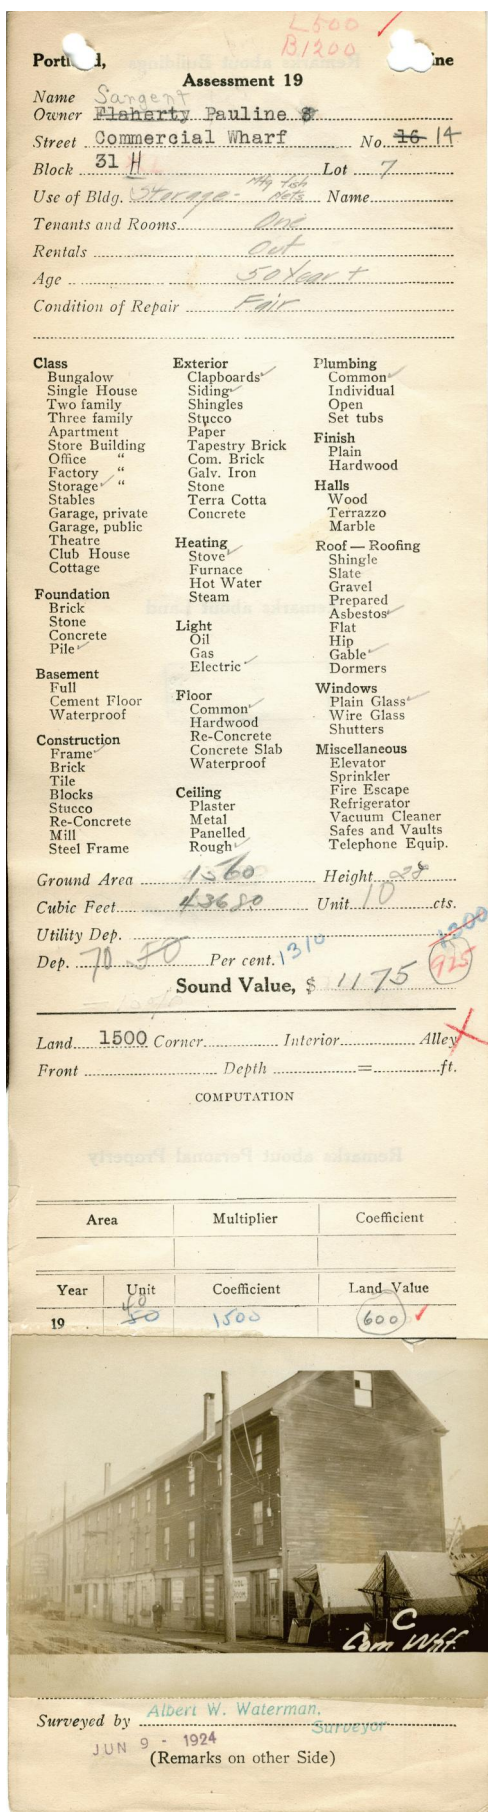 L500
B1200
Portl d, ine
Assessment 19
Name Sargent
Owner Flaherty Pauline S
Street Commercial Wharf No. 16 14
Block 31 H Lot 7
Use of Bldg. Storage - Mfg fish Nets Name
Tenants and Rooms One
Rentals Out
Age 50 Year +
Condition of Repair Fair
Class
Bungalow
Single House
Two family
Three family
Apartment
Store Building
Office "
Factory "
Storage ✓ "
Stables
Garage, private
Garage, public
Theatre
Club House
Cottage
Foundation
Brick
Stone
Concrete
Pile ✓
Basement
Full
Cement Floor
Waterproof
Construction
Frame ✓
Brick
Tile
Blocks
Stucco
Re-Concrete
Mill
Steel Frame
Exterior
Clapboards ✓
Siding ✓
Shingles
Stucco
Paper
Tapestry Brick
Com. Brick
Galv. Iron
Stone
Terra Cotta
Concrete
Heating
Stove ✓
Furnace
Hot Water
Steam
Light
Oil
Gas
Electric ✓
Floor
Common ✓
Hardwood
Re-Concrete
Concrete Slab
Waterproof
Ceiling
Plaster
Metal
Panelled
Rough ✓
Plumbing
Common ✓
Individual
Open
Set tubs
Finish
Plain
Hardwood
Halls
Wood
Terrazzo
Marble
Roof — Roofing
Shingle
Slate
Gravel
Prepared
Asbestos ✓
Flat
Hip
Gable ✓
Dormers
Windows
Plain Glass ✓
Wire Glass
Shutters
Miscellaneous
Elevator
Sprinkler
Fire Escape
Refrigerator
Vacuum Cleaner
Safes and Vaults
Telephone Equip.
Ground Area 1560 Height 28
Cubic Feet 43680 Unit 10 cts.
Utility Dep. 1200
Dep. 70 50 Per cent. 1310 925
Sound Value, $ 1175
Land 1500 Corner Interior Alley
Front Depth = ft.
COMPUTATION
Area Multiplier Coefficient
Year Unit Coefficient Land Value
19 40 50 1500 600 ✓
C
Com Whf.
Surveyed by Albert W. Waterman,
Surveyor
JUN 9 - 1924
(Remarks on other Side)